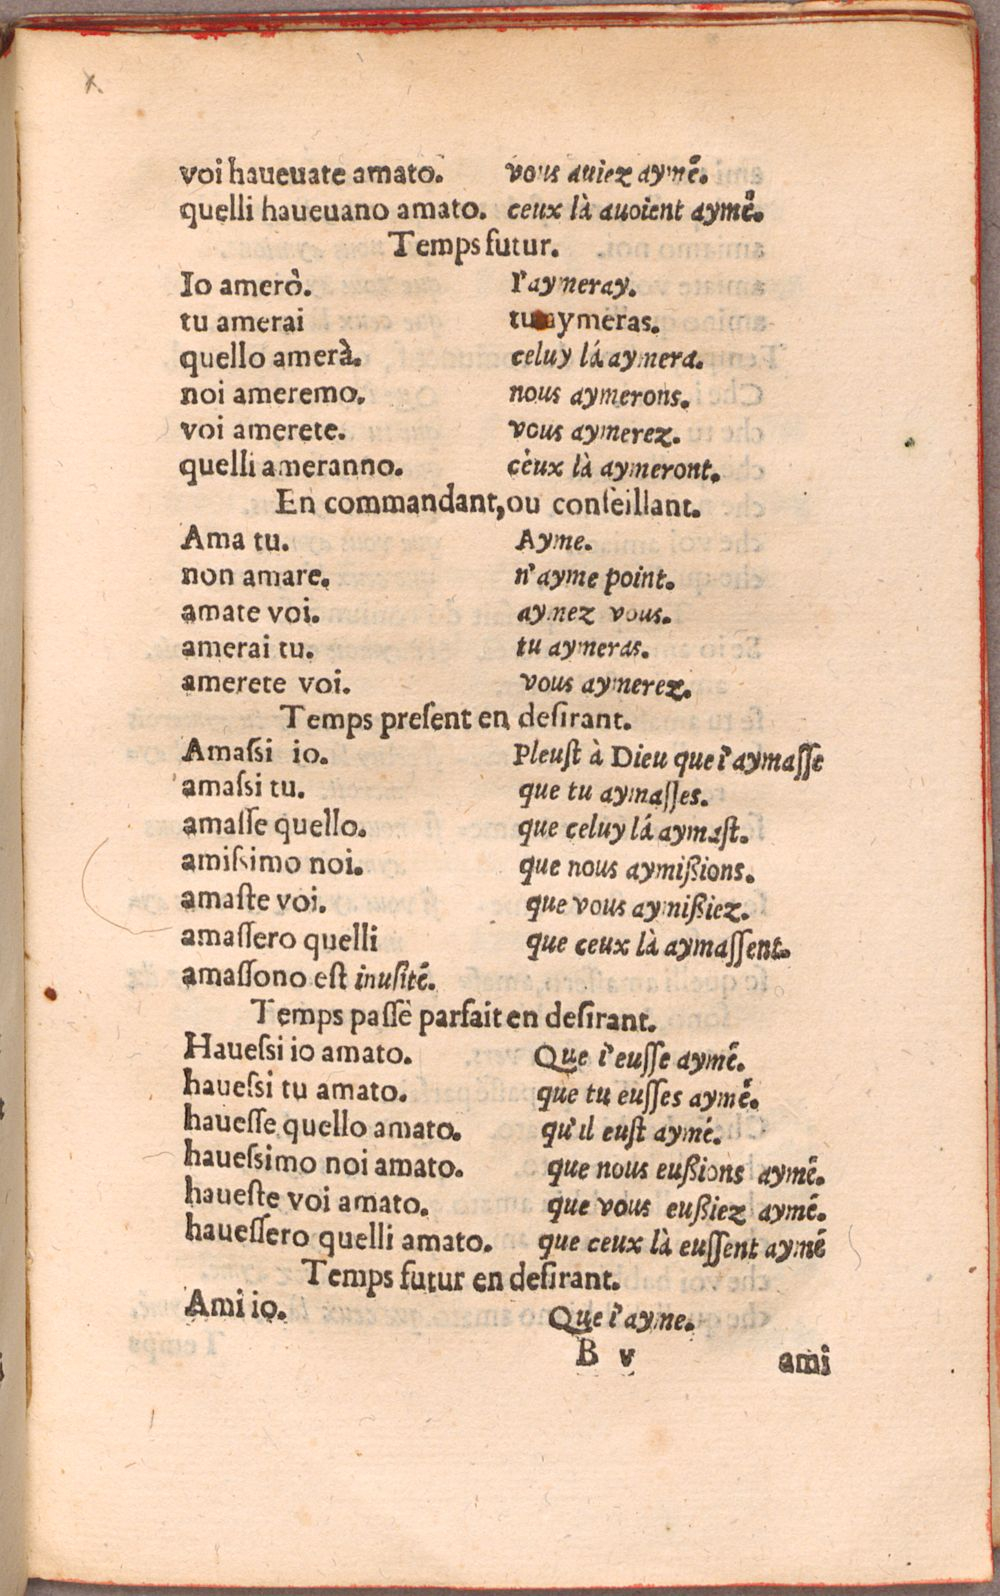 voi haueuate amato. vous auiez aymé.
quelli haueuano amato. ceux là auoient aymé.
Temps futur.
Io amerò. I'aymeray.
tu amerai tu aymeras.
quello amerà. celuy lá aymera.
noi ameremo. nous aymerons.
voi amerete. vous aymerez.
quelli ameranno. ceux là aymeront.
En commandant, ou conſeillant.
Ama tu. Ayme.
non amare. n'ayme point.
amate voi. aymez vous.
amerai tu. tu aymeras.
amerete voi. vous aymerez.
Temps preſent en deſirant.
Amaſsi io. Pleuſt à Dieu que i'aymaſſe
amaſsi tu. que tu aymaſſes.
amaſſe quello. que celuy lá aymaſt.
amiſsimo noi. que nous aymißions.
amaſte voi. que vous aymißiez.
amaſſero quelli que ceux là aymaſſent.
amaſſono eſt inuſité.
Temps paſſè parfait en deſirant.
Haueſsi io amato. Que i'euſſe aymé.
haueſsi tu amato. que tu euſſes aymé.
haueſſe quello amato. qu'il euſt aymé.
haueſsimo noi amato. que nous eußions aymé.
haueſte voi amato. que vous eußiez aymé.
haueſſero quelli amato. que ceux là euſſent aymé
Temps futur en deſirant.
Ami io. Que i'ayme.
B v ami